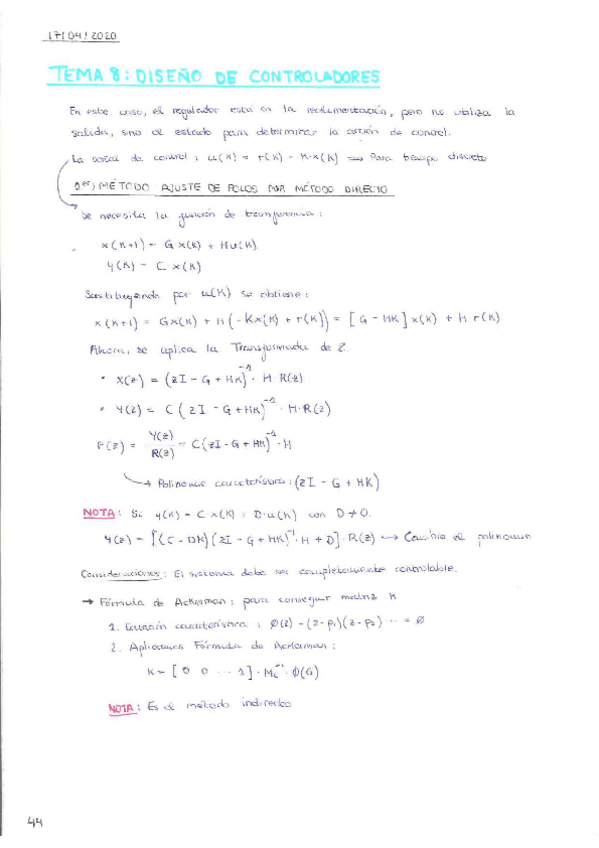 17/04/2020
TEMA 8: DISEÑO DE CONTROLADORES
En este caso, el regulador está en la realimentación, pero no utiliza la
salida, sino el estado para determinar la acción de control.
La señal de control: u(k) = r(k) - K·x(k) → Para tiempo discreto
MÉTODO AJUSTE DE POLOS POR MÉTODO DIRECTO
Se necesita la función de transferencia:
x(k+1) = Gx(k) + Hu(k)
y(k) = C x(k)
Sustituyendo por u(k) se obtiene:
x(k+1) = Gx(k) + H(-Kx(k) + r(k)) = [G - HK]x(k) + H r(k)
Ahora, se aplica la Transformada de Z.
• X(z) = (zI - G + HK)⁻¹ · H · R(z)
• Y(z) = C (zI - G + HK)⁻¹ · H · R(z)
F(z) = Y(z)/R(z) = C(zI - G + HK)⁻¹ · H
→ Polinomio característico: (zI - G + HK)
NOTA: Si y(k) = C x(k) + D·u(k) con D ≠ 0.
Y(z) = [(C - DK)(zI - G + HK)⁻¹ · H + D] · R(z) → Cambia el polinomio
Consideraciones: El sistema debe ser completamente controlable.
→ Fórmula de Ackerman: para conseguir matriz K
1. Ecuación característica: Ø(z) = (z-p₁)(z-p₂) ... = Ø
2. Aplicamos Fórmula de Ackerman:
K = [0 0 ... 1] · Mc⁻¹ · Ø(G)
NOTA: Es el método indirecto
44